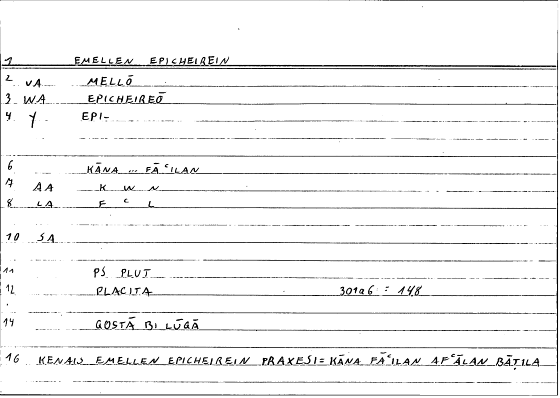 1 EMELLEN EPICHEIREIN
2 VA MELLŌ
3 WA EPICHEIREŌ
4 Y EPI-
6 KĀNA ... FĀʿILAN
7 AA K W N
8 LA F ʿ L
10 SA
11 PS. PLUT
12 PLACITA 301a6 = 148
14 QOSṬĀ BI LŪQĀ
16 KENAIS EMELLEN EPICHEIREIN PRAXESI = KĀNA FĀʿILAN AFʿĀLAN BĀṬILA